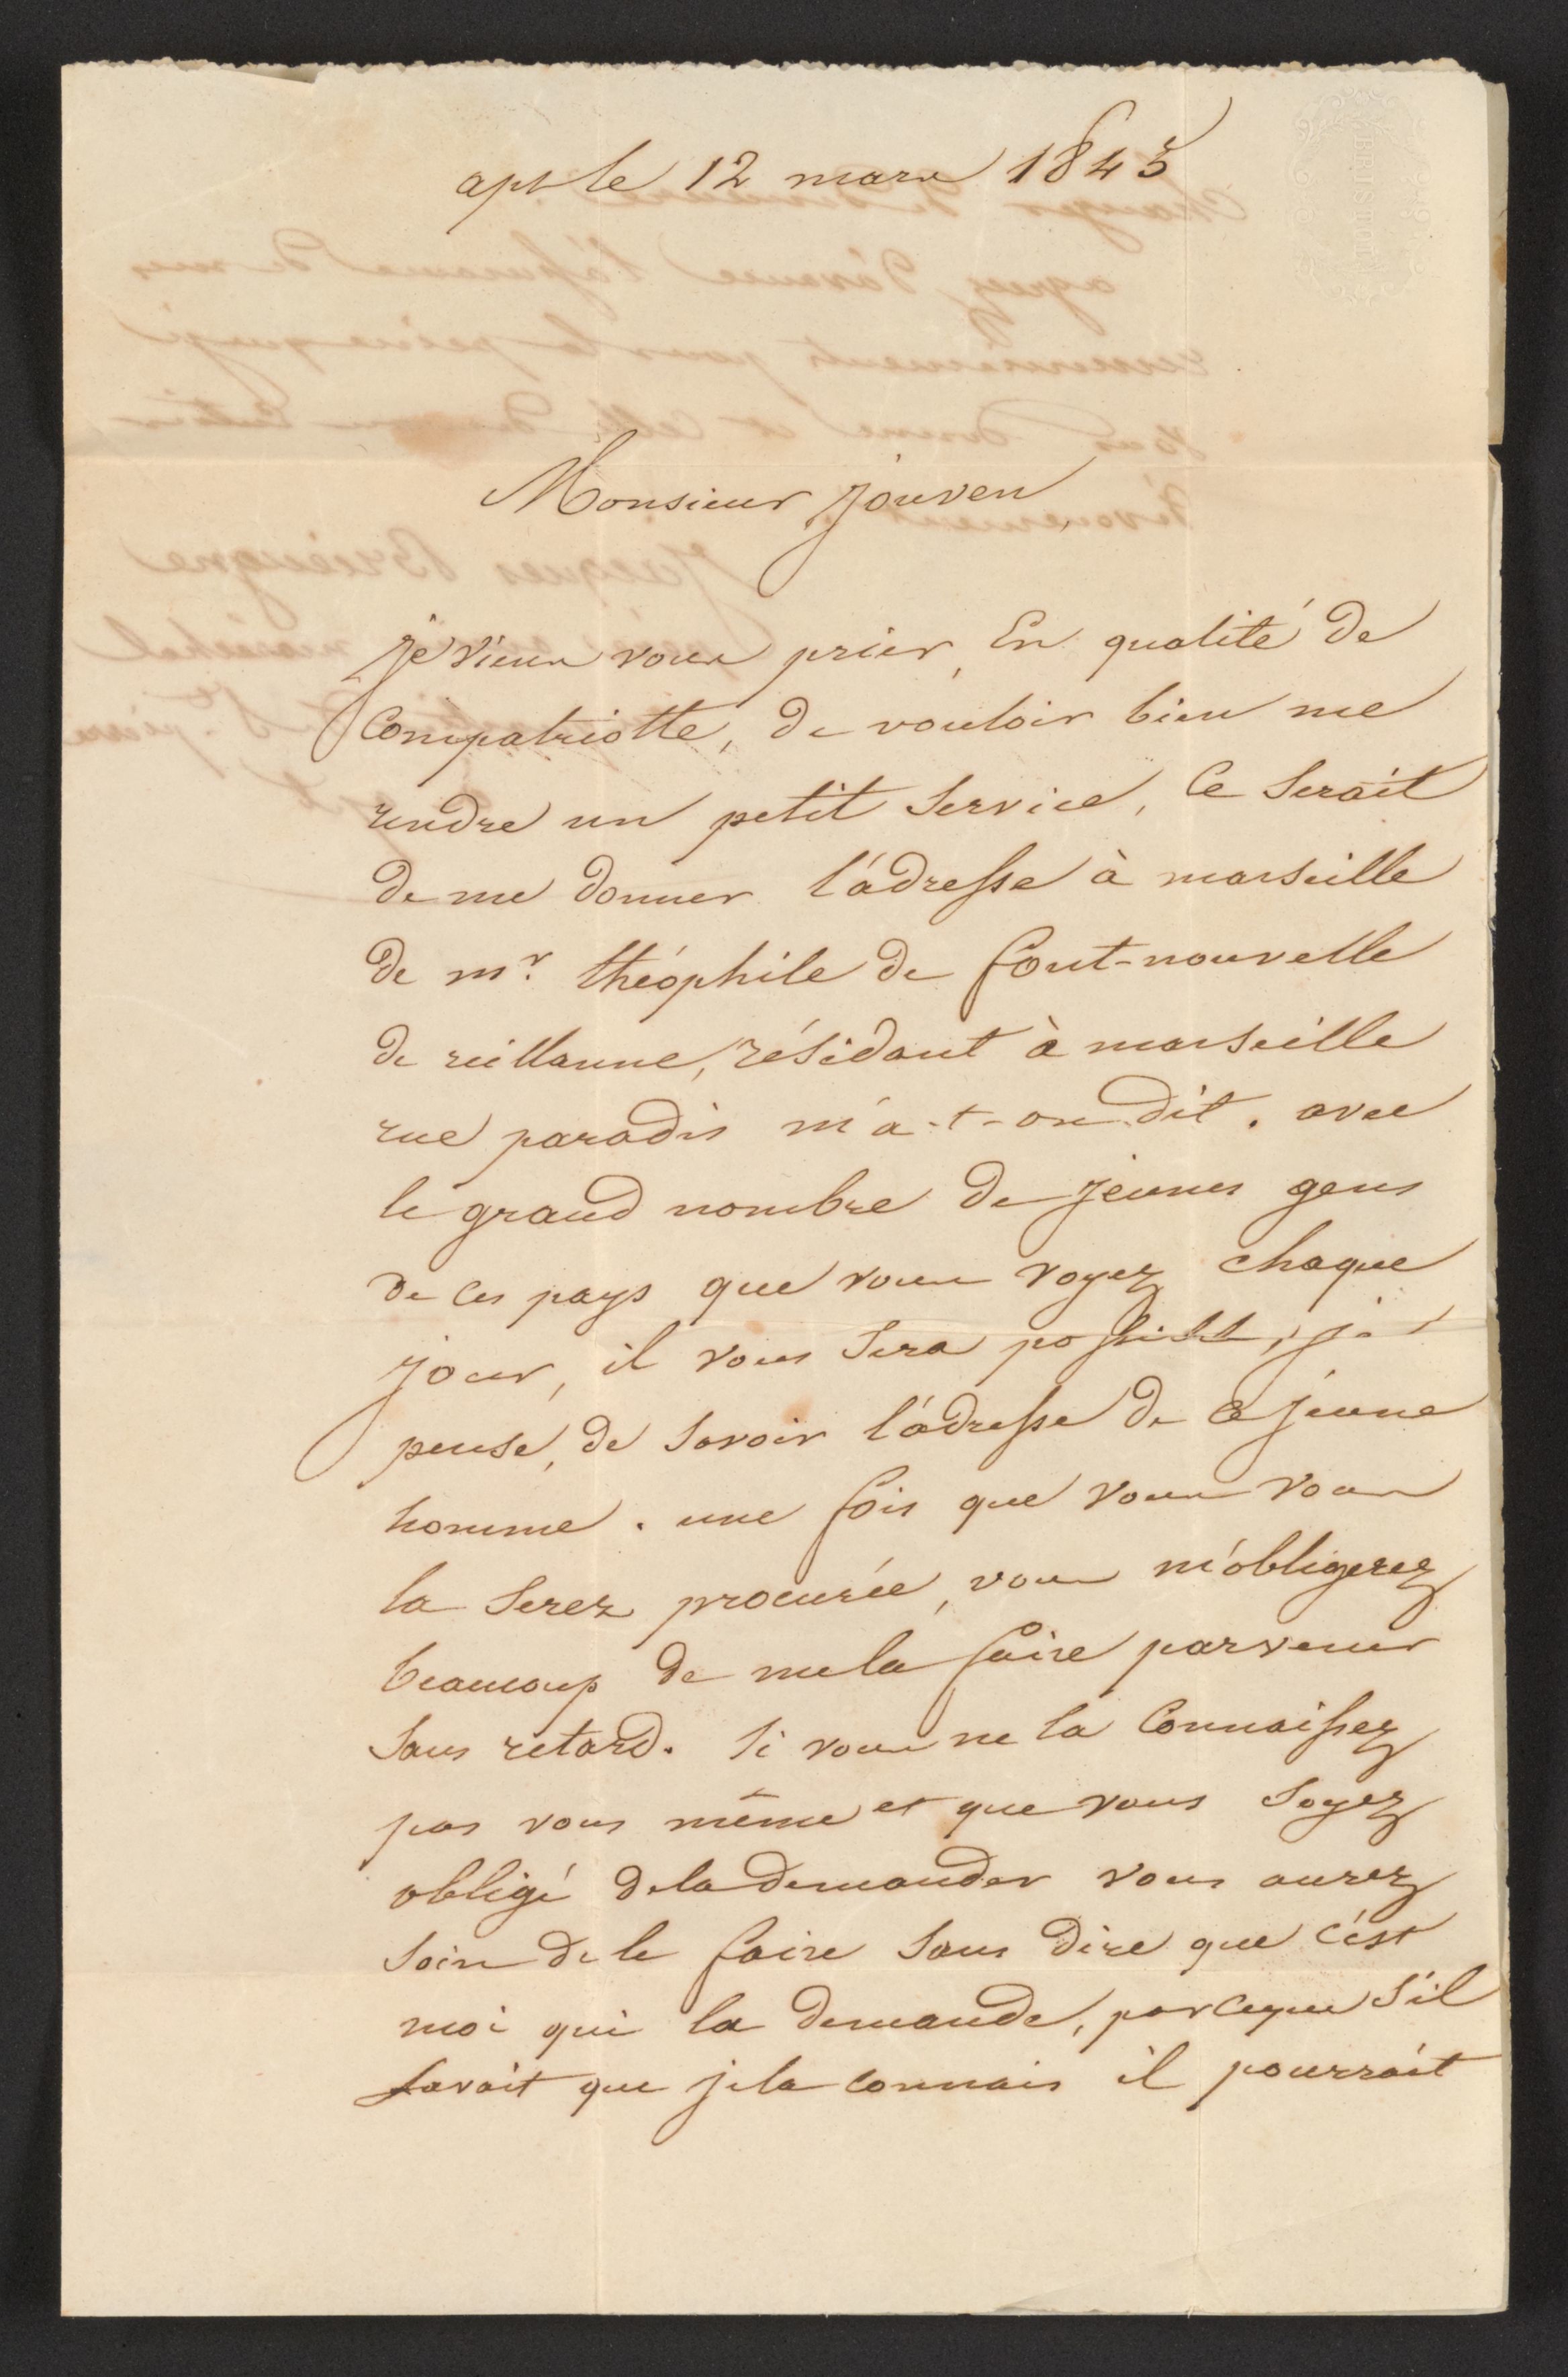 apt le 12 mars 1845
Monsieur jouven
je viens vous prier, En qualité de
Compatriotte, de vouloir bien me
rendre un petit Service, Ce Serait
de me donner l'adresse à marseille
de mr. théophile de font-nouvelle
de reillanne, résidant à marseille
rue paradis m'a-t-on dit. avec
le grand nombre de jeunes gens
de ces pays que vous voyez chaque
jour, il vous Sera possible, je
pense, de Savoir l'adresse de ce jeune
homme. une fois que vous vous
la Serez procurée, vous m'obligerez
beaucoup de me la faire parvenir
Sans retard. Si vous ne la Connaissez
pas vous même et que vous Soyez
obligé de la demander vous aurez
Soin de le faire Sans dire que c'est
moi qui la demande, parceque S'il
Savait que je la connais il pourrait